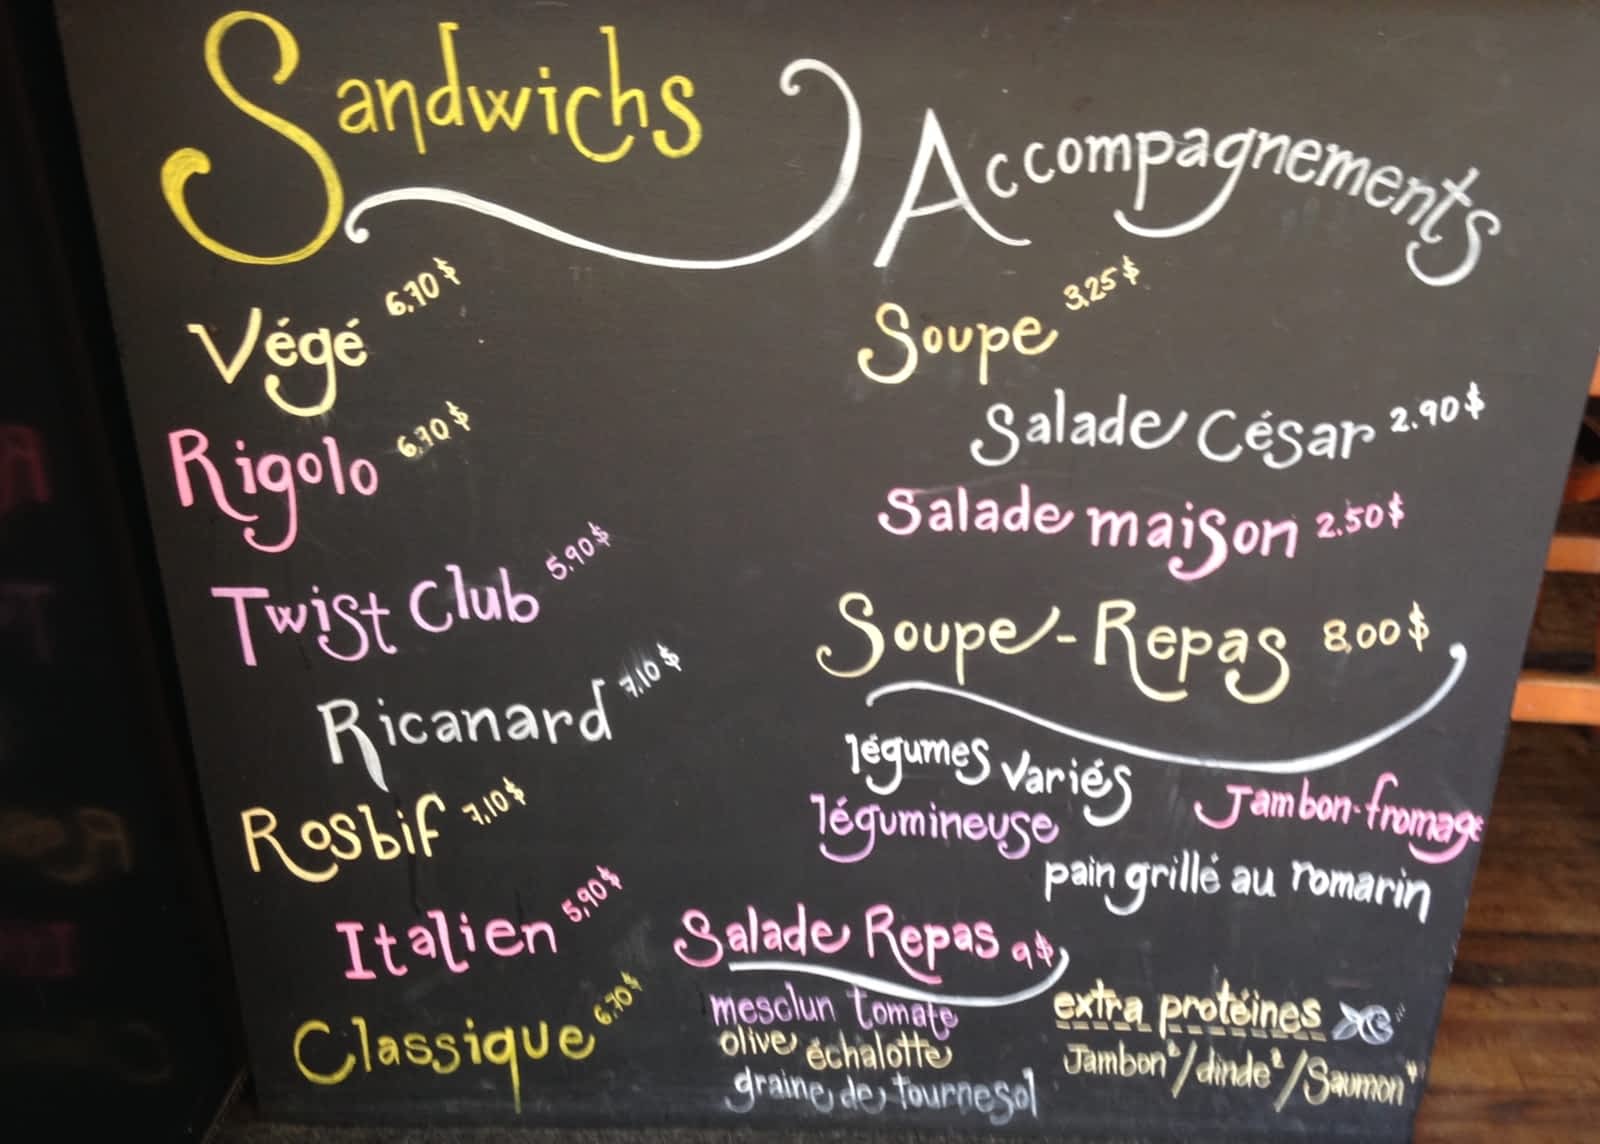 Sandwichs
Végé 6,70$
Rigolo 6,70$
Twist Club 5,90$
Ricanard 7,10$
Rosbif 7,10$
Italien 5,90$
Classique 6,70$
Accompagnements
Soupe 3,25$
Salade César 2.90$
Salade maison 2.50$
Soupe-Repas 8,00$
légumes variés
légumineuse
Jambon-fromage
pain grillé au romarin
Salade Repas 9$
mesclun tomate
olive échalotte
graine de tournesol
extra protéines
Jambon²/dinde²/Saumon⁴